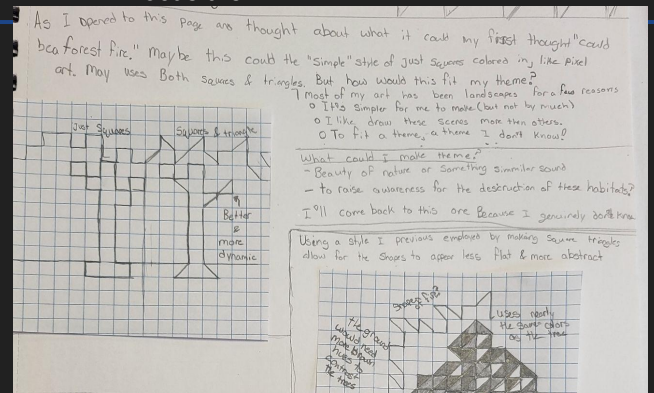 As I opened to this page and thought about what it could my first thought "could
be a forest fire." Maybe this could the "simple" style of just squares colored in, like pixel
art. May uses Both squares & triangles. But how would this fit my theme?
Most of my art has been landscapes for a few reasons
o It's simpler for me to make (but not by much)
o I like draw these scenes more then others.
o To fit a theme, a theme I don't know!
Just Squares
Squares & triangle
Better
&
more
dynamic
What could I make theme?
- Beauty of nature or something simmilar sound
- to raise awareness for the destruction of these habitats?
I'll come back to this one Because I genuinely don't know
Using a style I previous employed by making square triangles
allow for the shapes to appear less flat & more abstract
Shapes of fire?
uses nearly
the same colors
as the tree
the ground
would need
more brown
hues to
contrast
the trees